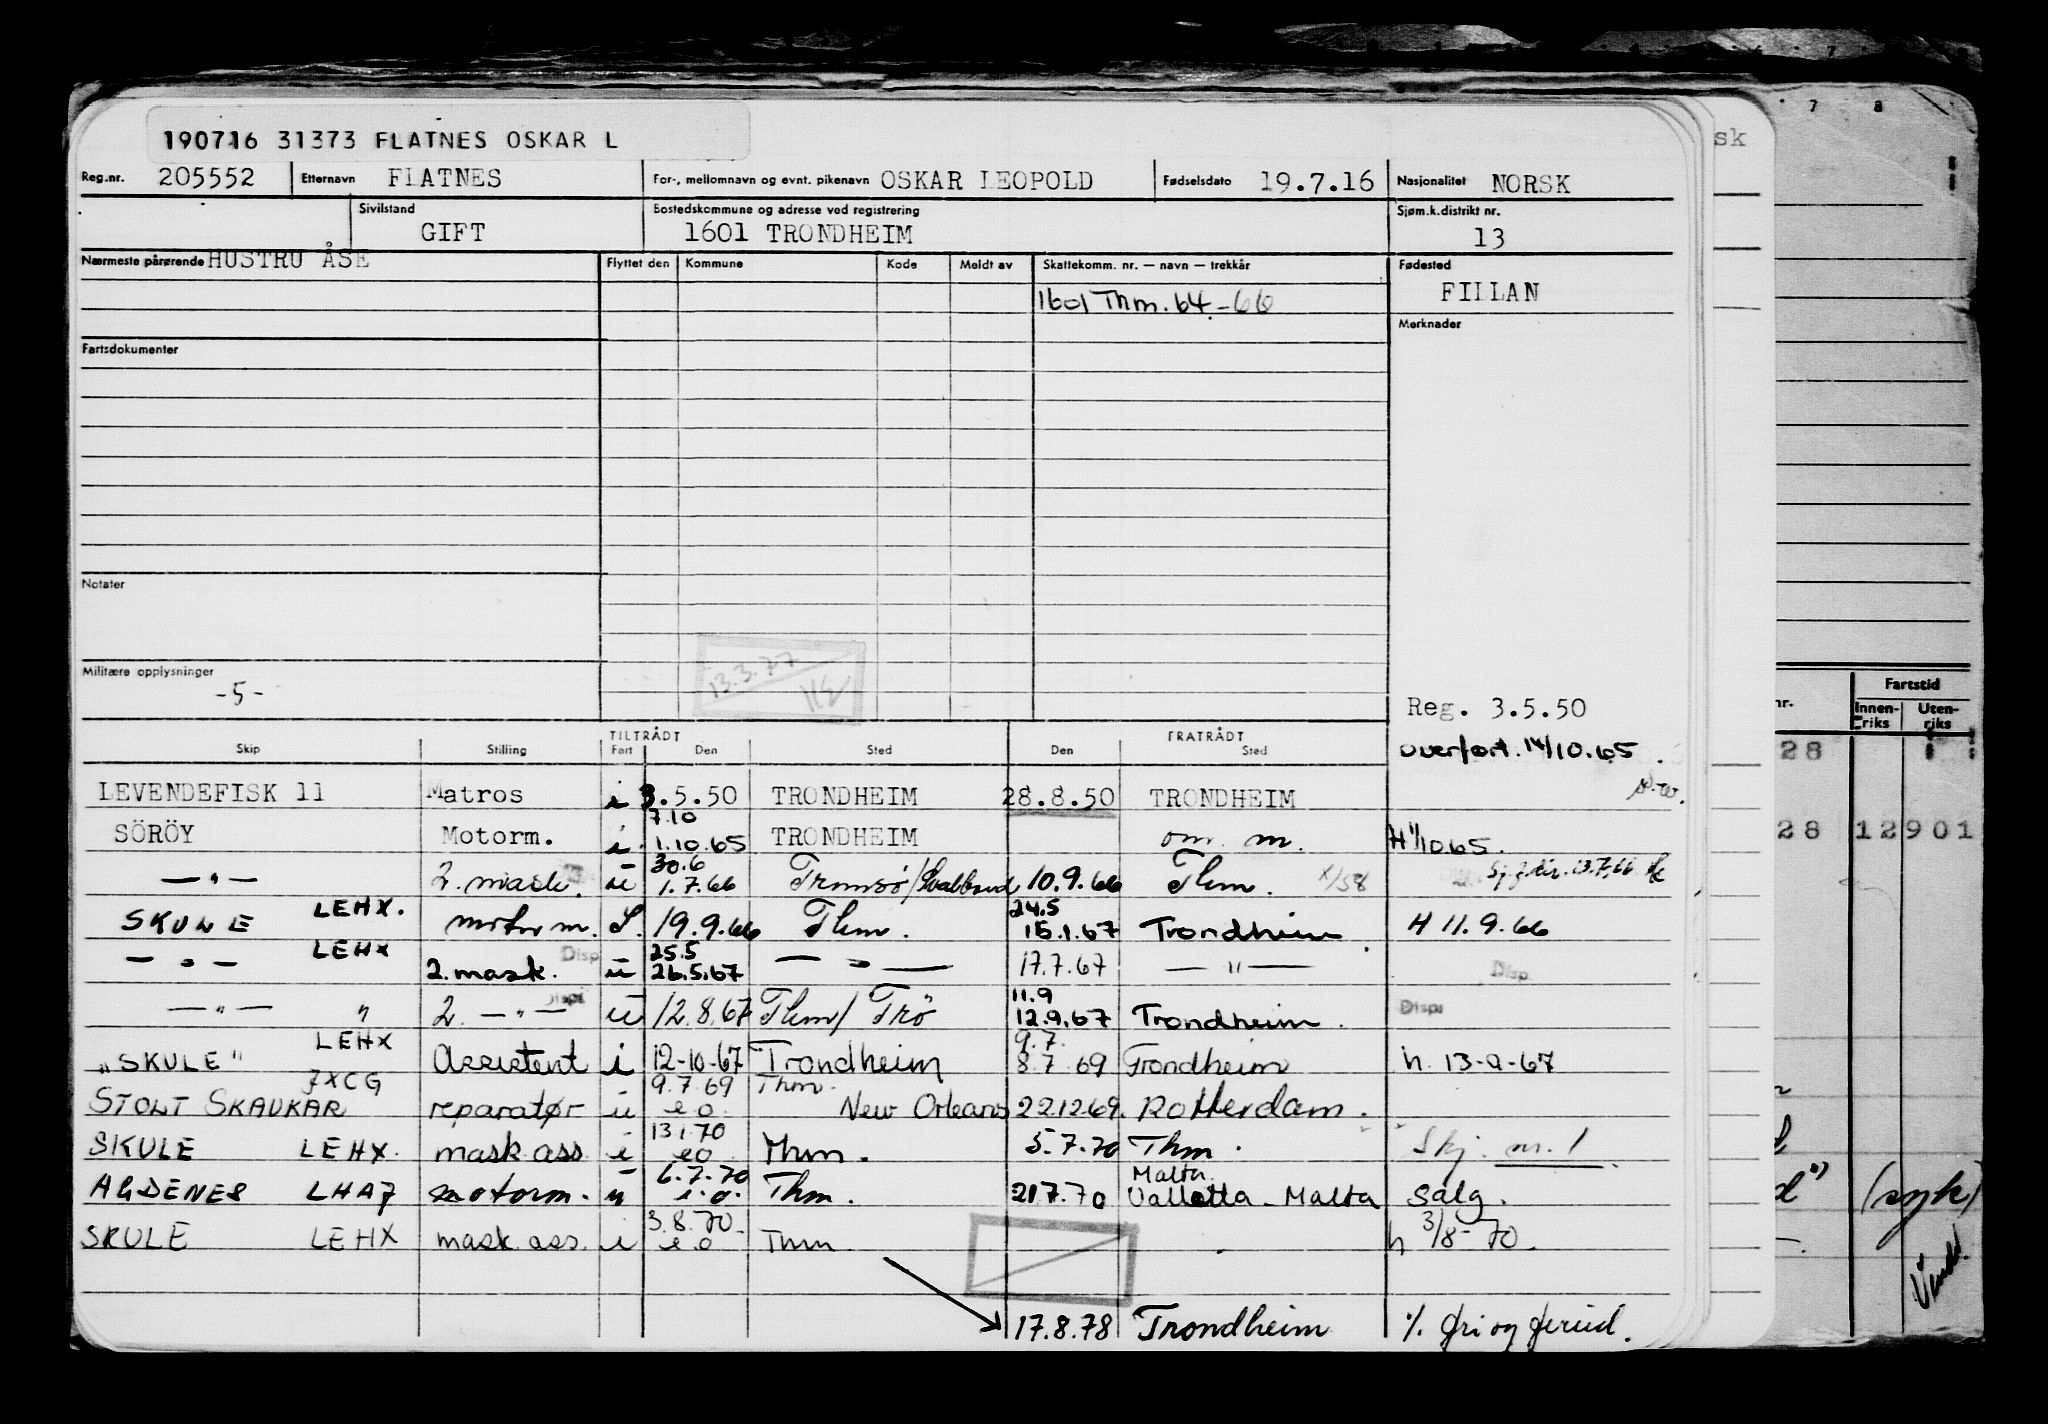 190716 31373 FLATNES OSKAR L
Reg.nr. 205552 Etternavn FLATNES For-, mellomnavn og evnt. pikenavn OSKAR LEOPOLD Fødselsdato 19.7.16 Nasjonalitet NORSK
Sivilstand GIFT Bostedskommune og adresse ved registrering 1601 TRONDHEIM Sjøm.k.distrikt nr. 13
Nærmeste pårørende HUSTRU ÅSE Flyttet den Kommune Kode Meldt av Skattekomm. nr. — navn — trekkår Fødested FILLAN
1601 Thm. 64-66
Merknader
Fartsdokumenter
Notater
13.3.77
Militære opplysninger
-5-
Reg. 3.5.50
Overført. 14/10.65
TILTRÅDT FRATRÅDT
Skip Stilling Fart Den Sted Den Sted
LEVENDEFISK 11 Matros i 3.5.50 TRONDHEIM 28.8.50 TRONDHEIM
7.10
SÖRÖY Motorm. i. 1.10.65 TRONDHEIM om. m.
30.6
—"— 2. mask. u 1.7.66 Tromsø/Svalbard 10.9.66 Thm. X/58
LEHX. 24.5
SKULE motorm. S. 19.9.66 Thm. 15.1.67 Trondheim H 11.9.66
LEHX Disp 25.5
—"— 2. mask. u 26.5.67 —"— 17.7.67 —"— Disp.
Disp. 11.9
—"— " 2. —"— u 12.8.67 Thm/ Trö 12.9.67 Trondheim. Disp.
LEHX 9.7.
"SKULE" Assistent i 12-10-67 Trondheim 8.7 69 Trondheim h. 13-9-67
JXCG 9.7.69 Thm.
STOLT SKAUKAR reparatør u e.o. New Orleans 22.12.69. Rotterdam.
13.1.70
SKULE LEHX. mask ass i eo Thm. 5.7.70 Thm. Skj. nr. 1.
6.7.70 Malta
AGDENES LHAJ motorm. u i.o. Thm. 21.7.70 Valletta - Malta Salg.
3.8.70
SKULE LEHX mask. ass. i e.o Thm h 3/8-70.
17.8.78 Trondheim
sk
7 8
nr.
Fartstid
Innenriks Utenriks
28
28 12901
(syk)